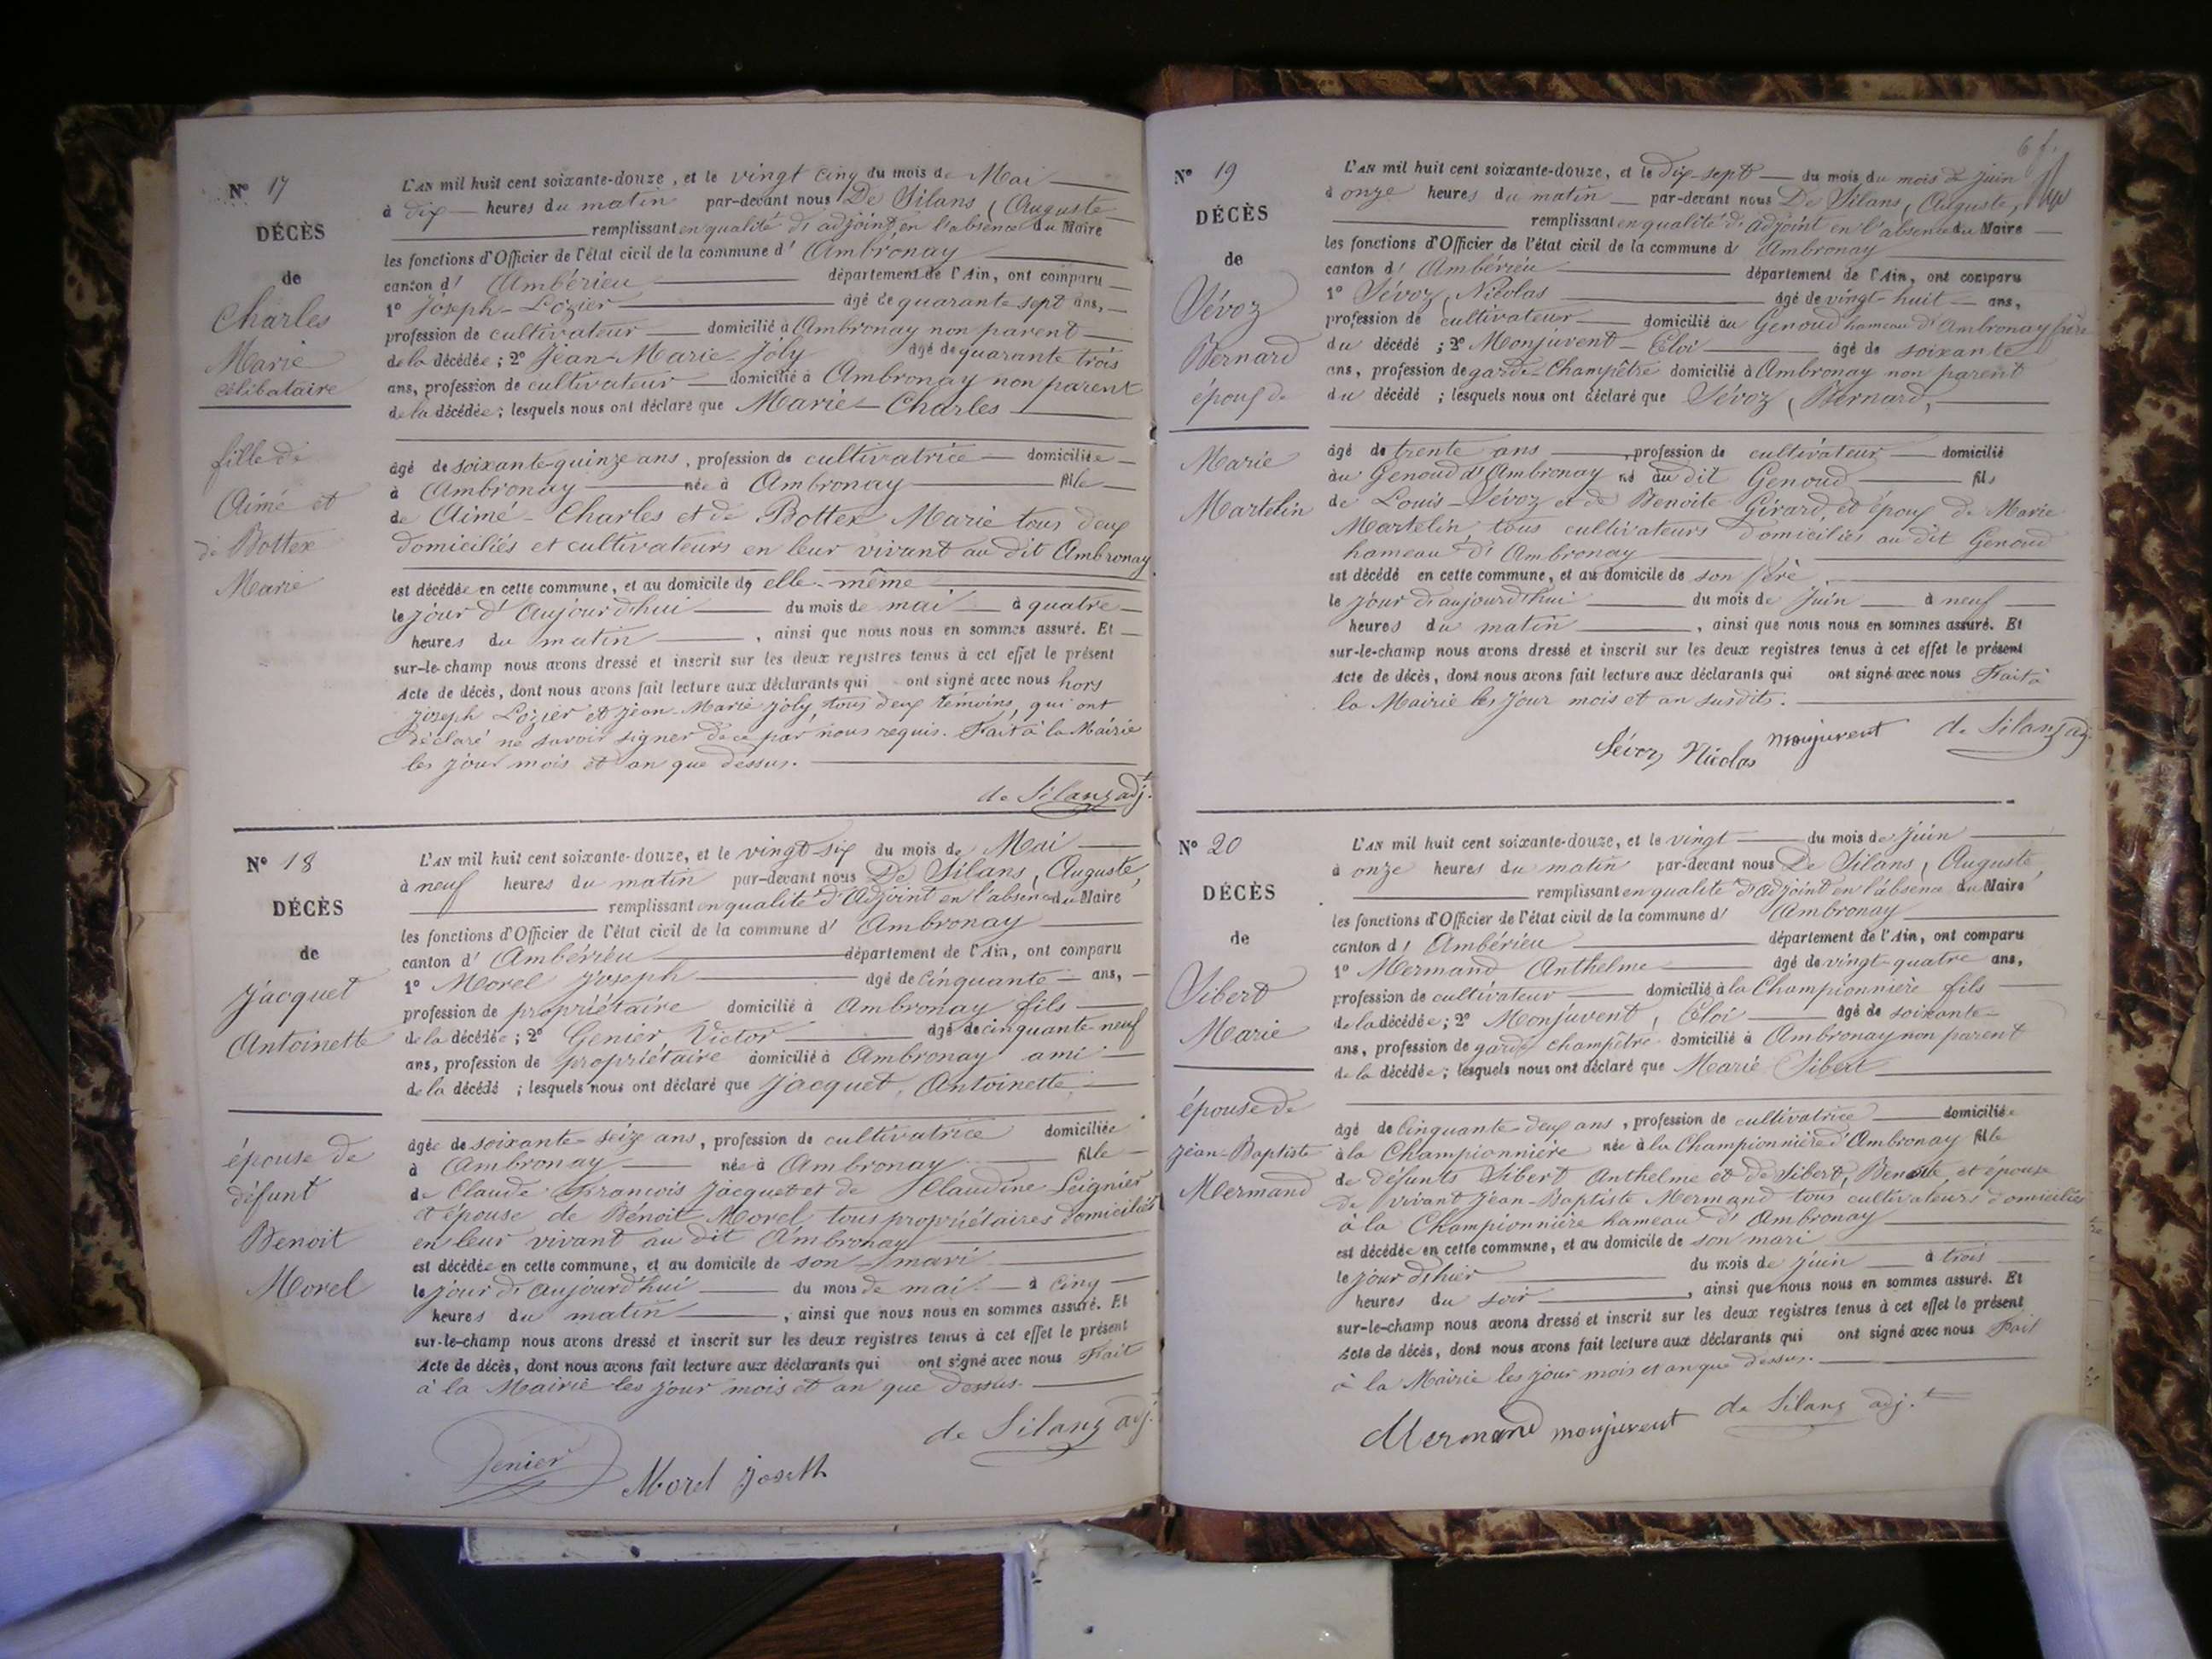 N° 17
DÉCÈS
de
Charles
Marie
célibataire
fille de
Aimé et
de Bottex
Marie
L'AN mil huit cent soixante-douze, et le vingt cinq du mois de Mai
à dix heures du matin par-devant nous De Silans, Auguste
remplissant en qualité d'adjoint, en l'absence du Maire
les fonctions d'Officier de l'état civil de la commune d'Ambronay
canton d'Ambérieu département de l'Ain, ont comparu
1° Joseph-Lozier âgé de quarante sept ans,
profession de cultivateur domicilié à Ambronay non parent
de la décédée; 2° Jean-Marie Joly âgé de quarante trois
ans, profession de cultivateur domicilié à Ambronay non parent
de la décédée; lesquels nous ont déclaré que Marie-Charles
âgé de soixante-quinze ans, profession de cultivatrice domiciliée
à Ambronay née à Ambronay fille
de Aimé-Charles et de Bottex Marie tous deux
domiciliés et cultivateurs en leur vivant au dit Ambronay
est décédée en cette commune, et au domicile de elle-même
le jour d'Aujourd'hui du mois de mai à quatre
heures du matin, ainsi que nous nous en sommes assuré. Et
sur-le-champ nous avons dressé et inscrit sur les deux registres tenus à cet effet le présent
Acte de décès, dont nous avons fait lecture aux déclarants qui ont signé avec nous hors
Joseph Lozier et Jean-Marie Joly, tous deux témoins, qui ont
déclaré ne savoir signer de ce par nous requis. Fait à la Mairie
les jour mois et an que dessus.
de Silans adj.t
N° 18
DÉCÈS
de
Jacquet
Antoinette
épouse de
défunt
Benoit
Morel
L'AN mil huit cent soixante-douze, et le vingt-six du mois de Mai
à neuf heures du matin par-devant nous De Silans, Auguste,
remplissant en qualité d'Adjoint en l'absence du Maire
les fonctions d'Officier de l'état civil de la commune d'Ambronay
canton d'Ambérieu département de l'Ain, ont comparu
1° Morel Joseph âgé de Cinquante ans,
profession de propriétaire domicilié à Ambronay fils
de la décédée; 2° Genier Victor âgé de cinquante neuf
ans, profession de propriétaire domicilié à Ambronay ami
de la décédé; lesquels nous ont déclaré que Jacquet, Antoinette,
âgée de soixante-seize ans, profession de cultivatrice domiciliée
à Ambronay née à Ambronay fille
de Claude François Jacquet et de Claudine Leignier
et épouse de Bénoit Morel tous propriétaires domiciliés
en leur vivant au dit Ambronay
est décédée en cette commune, et au domicile de son mari
le jour d'aujourd'hui du mois de mai à Cinq
heures du matin, ainsi que nous nous en sommes assuré. Et
sur-le-champ nous avons dressé et inscrit sur les deux registres tenus à cet effet le présent
Acte de décès, dont nous avons fait lecture aux déclarants qui ont signé avec nous Fait
à la Mairie les jour mois et an que dessus.
de Silans adj.
Genier Morel Joseth
6 f.
N° 19
DÉCÈS
de
Sévoz
Bernard
époux de
Marie
Martelin
L'AN mil huit cent soixante-douze, et le dix-sept du mois du mois de Juin
à onze heures du matin par-devant nous De Silans, Auguste,
remplissant en qualité d'adjoint en l'absence du Maire
les fonctions d'Officier de l'état civil de la commune d'Ambronay
canton d'Ambérieu département de l'Ain, ont comparu
1° Sévoz, Nicolas âgé de vingt-huit ans,
profession de cultivateur domicilié au Genoud hameau d'Ambronay frère
du décédé; 2° Monjuvent-Eloi âgé de soixante
ans, profession de garde-Champêtre domicilié à Ambronay non parent
du décédé; lesquels nous ont déclaré que Sévoz, Bernard,
âgé de trente ans, profession de cultivateur domicilié
au Genoud d'Ambronay né au dit Genoud fils
de Louis-Sévoz et de Benoite Girard et époux de Marie
Martelin tous cultivateurs domiciliés au dit Genoud
hameau d'Ambronay
est décédé en cette commune, et au domicile de son père
le jour d'aujourd'hui du mois de Juin à neuf
heures du matin, ainsi que nous nous en sommes assuré. Et
sur-le-champ nous avons dressé et inscrit sur les deux registres tenus à cet effet le présent
Acte de décès, dont nous avons fait lecture aux déclarants qui ont signé avec nous Fait à
la Mairie les jour mois et an susdits.
Sévoz Nicolas monjuvent de Silans adj
N° 20
DÉCÈS
de
Sibert
Marie
épouse de
Jean-Baptiste
Mermand
L'AN mil huit cent soixante-douze, et le vingt du mois de Juin
à onze heures du matin par-devant nous De Silans, Auguste,
remplissant en qualité d'Adjoint en l'absence du Maire
les fonctions d'Officier de l'état civil de la commune d'Ambronay
canton d'Ambérieu département de l'Ain, ont comparu
1° Mermand Anthelme âgé de vingt-quatre ans,
profession de cultivateur domicilié à la Championnière fils
de la décédée; 2° Monjuvent, Eloi âgé de soixante
ans, profession de garde champêtre domicilié à Ambronay non parent
de la décédée; lesquels nous ont déclaré que Marie Sibert
âgé de Cinquante-deux ans, profession de cultivatrice domiciliée
à la Championnière née à la Championnière d'Ambronay fille
de défunts Sibert Anthelme et de Sibert, Benoite, et épouse
de vivant Jean-Baptiste Mermand tous cultivateurs domiciliés
à la Championnière hameau d'Ambronay
est décédée en cette commune, et au domicile de son mari
le jour d'hier du mois de Juin à trois
heures du soir, ainsi que nous nous en sommes assuré. Et
sur-le-champ nous avons dressé et inscrit sur les deux registres tenus à cet effet le présent
Acte de décès, dont nous avons fait lecture aux déclarants qui ont signé avec nous Fait
à la Mairie les jour mois et an que dessus.
Mermand monjuvent de Silans adj.t